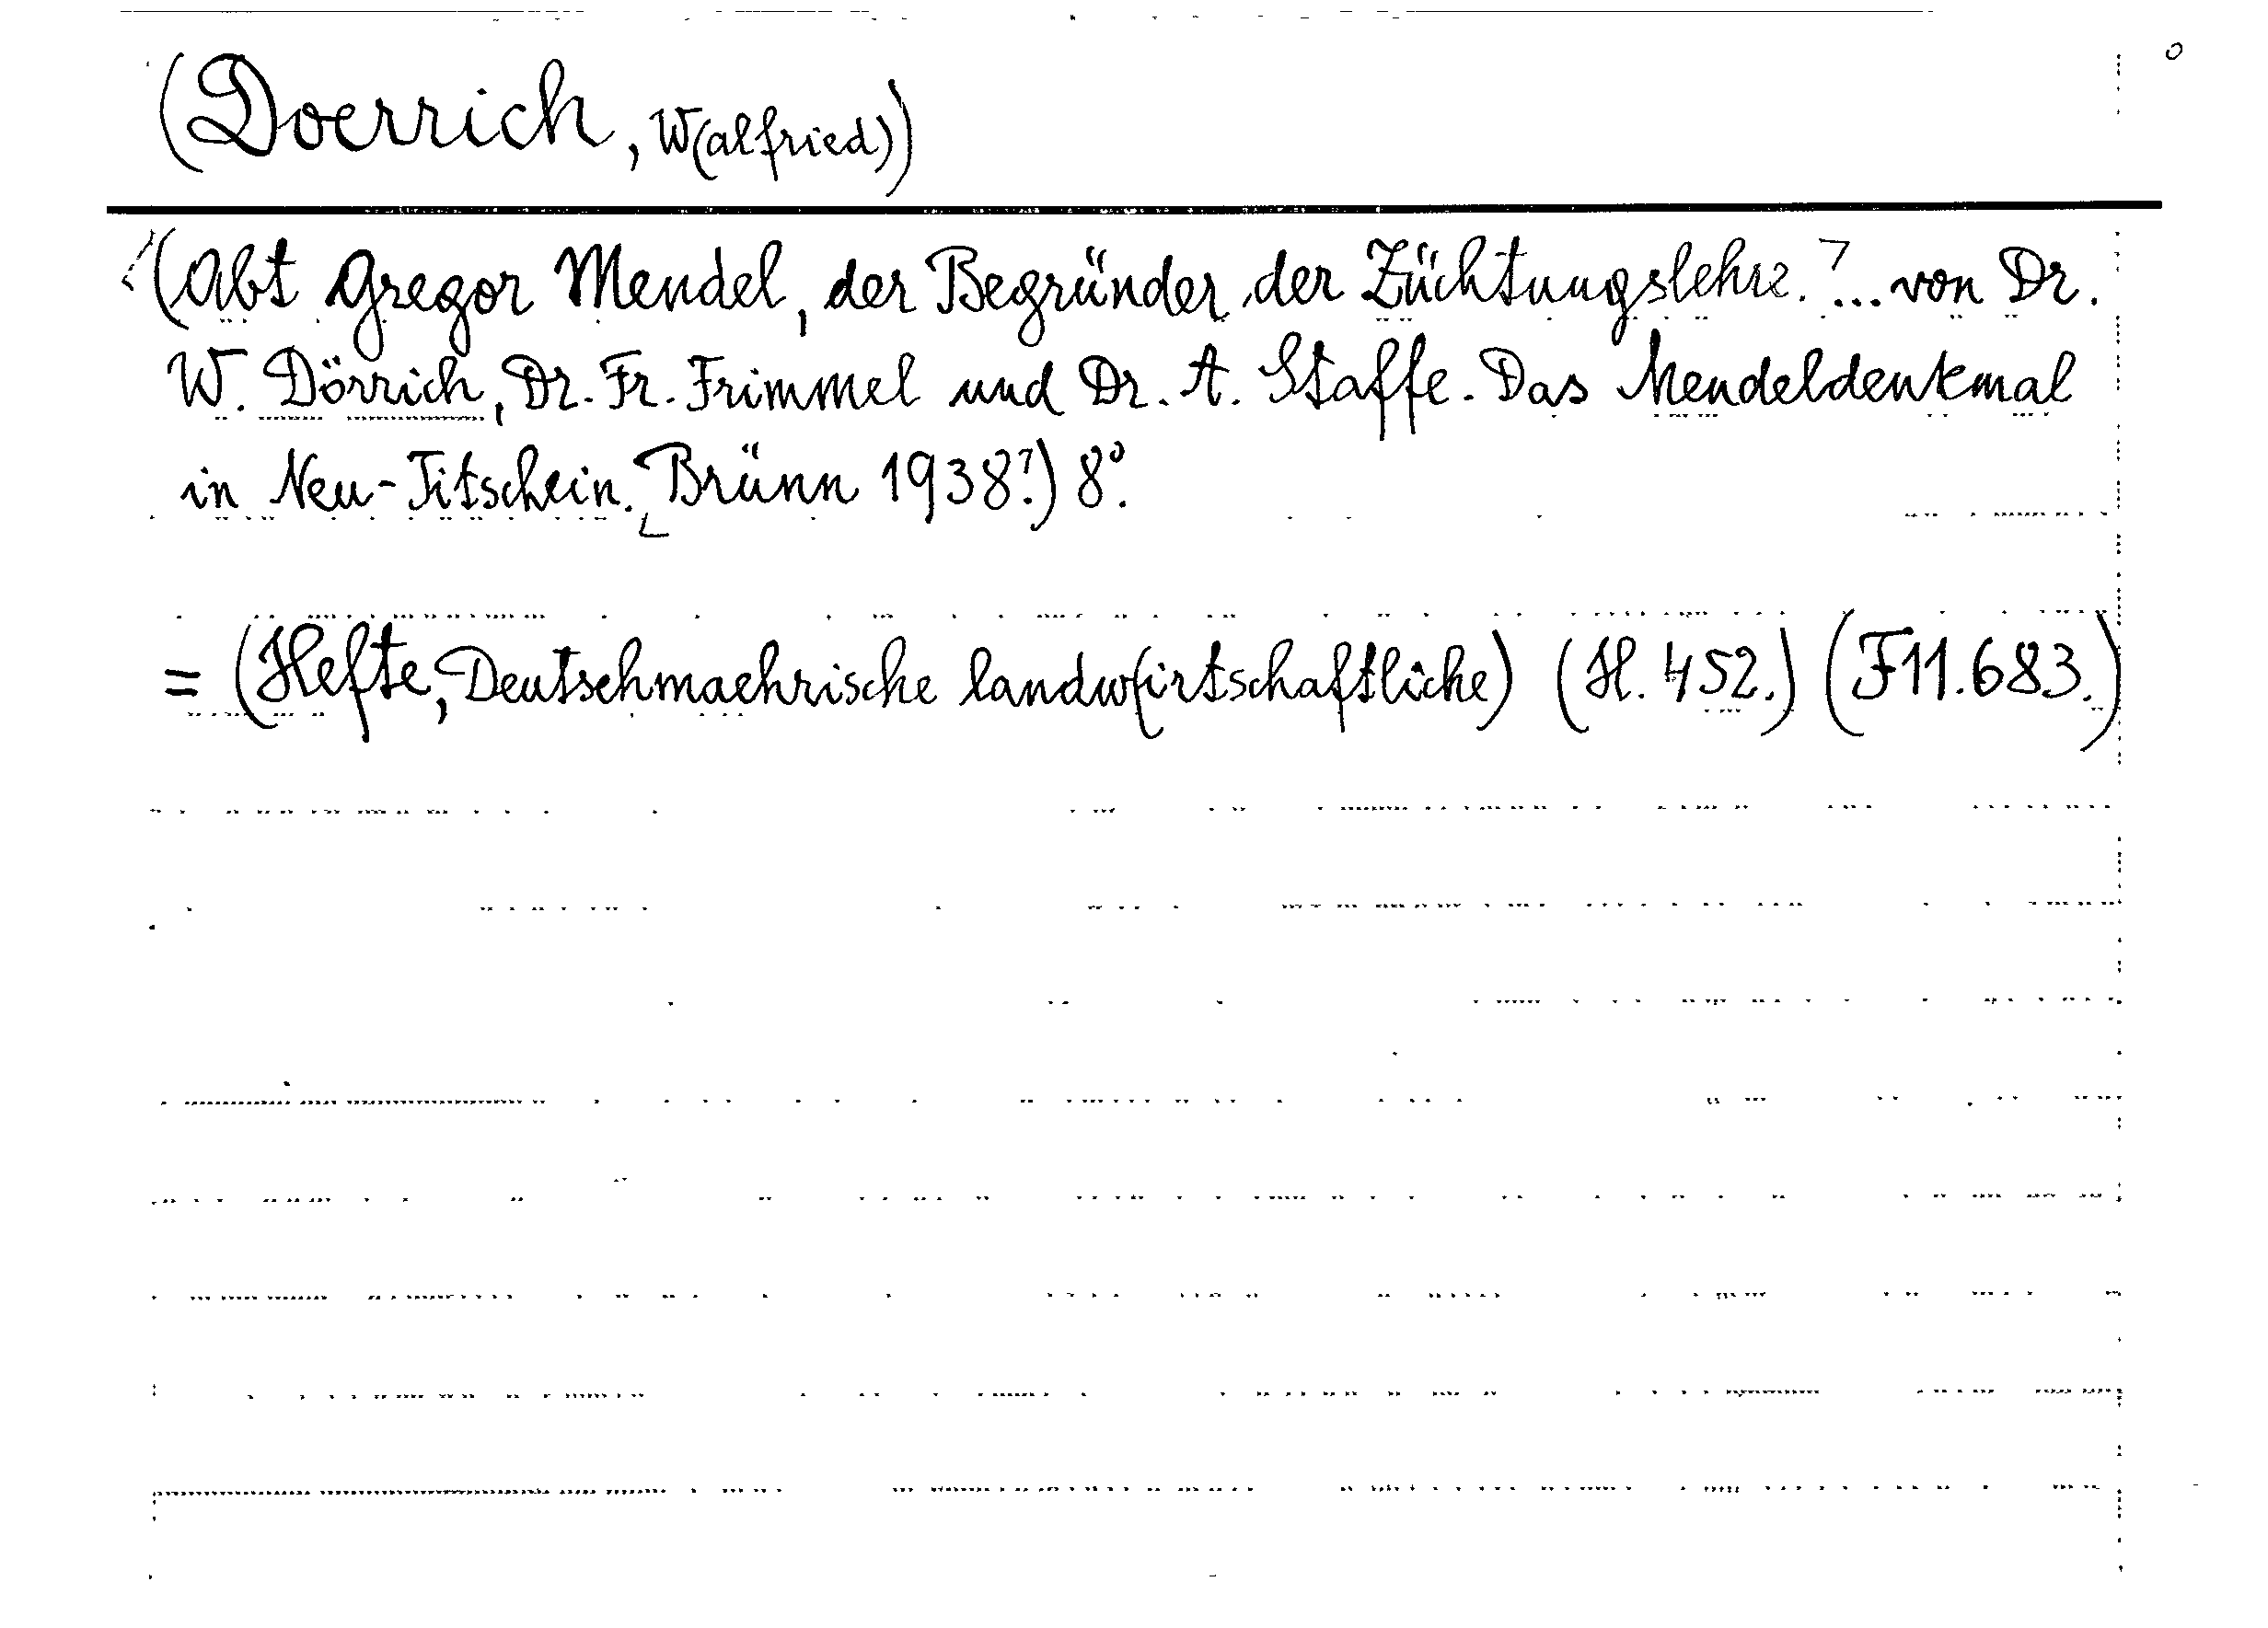 (Doerrich, W(alfried))
(Abt Gregor Mendel, der Begründer der Züchtungslehre.⌝... von Dr.
W. Dörrich, Dr. Fr. Frimmel und Dr. A. Staffe. Das Mendeldenkmal
in Neu-Titschein.⌞Brünn 1938?) 8°.
= (Hefte, Deutschmaehrische landw(irtschaftliche) (H. 452.) (F11.683.)